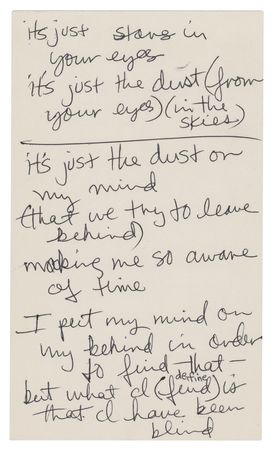 it's just stars in
your eyes
it's just the dust (from
your eyes) (in the
skies)
it's just the dust on
my mind
(that we try to leave
behind)
making me so aware
of time
I put my mind on
my behind in order
to find that —
but what I (find) is
define
that I have been
blind